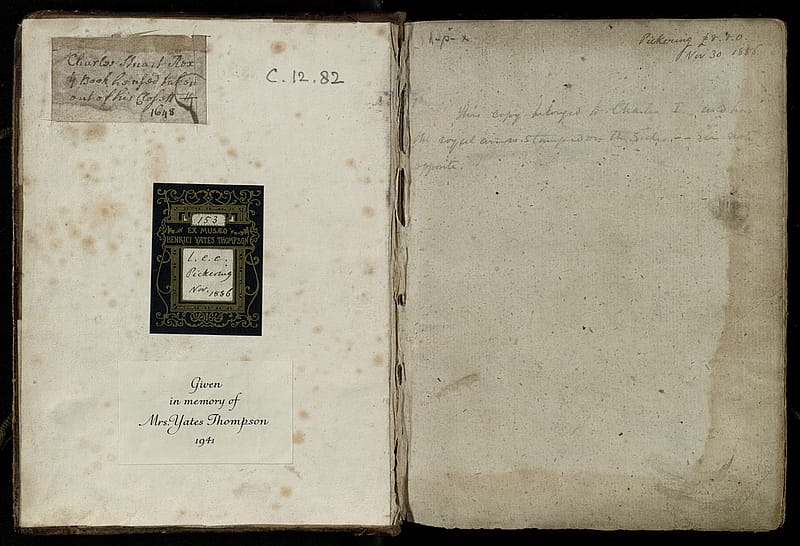 Charles Stuart Rex
his Book hensed taken
out of his Closett
1648
C.12.82
153
EX MUSÆO
HENRICI YATES THOMPSON
L.e.e.
Pickering
Nov. 1886
Given
in memory of
Mrs. Yates Thompson
1941
Pickering £8.8.0.
Nov 30 1886
This copy belonged to Charles I and has
the royal arms stamped on the sides — see note
opposite.